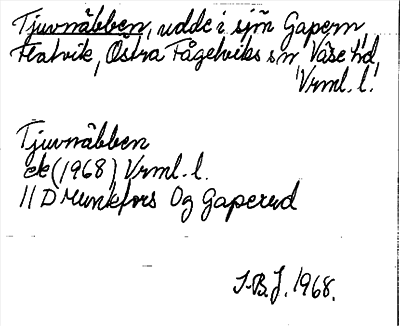 Tjuvnäbben, udde i sjön Gapern,
Flatvik, Östra Fågelviks sn Väse hd,
Vrml. l.
Tjuvnäbben
ek (1968) Vrml. l.
11D Munkfors Og Gaperud
I.B.J. 1968.